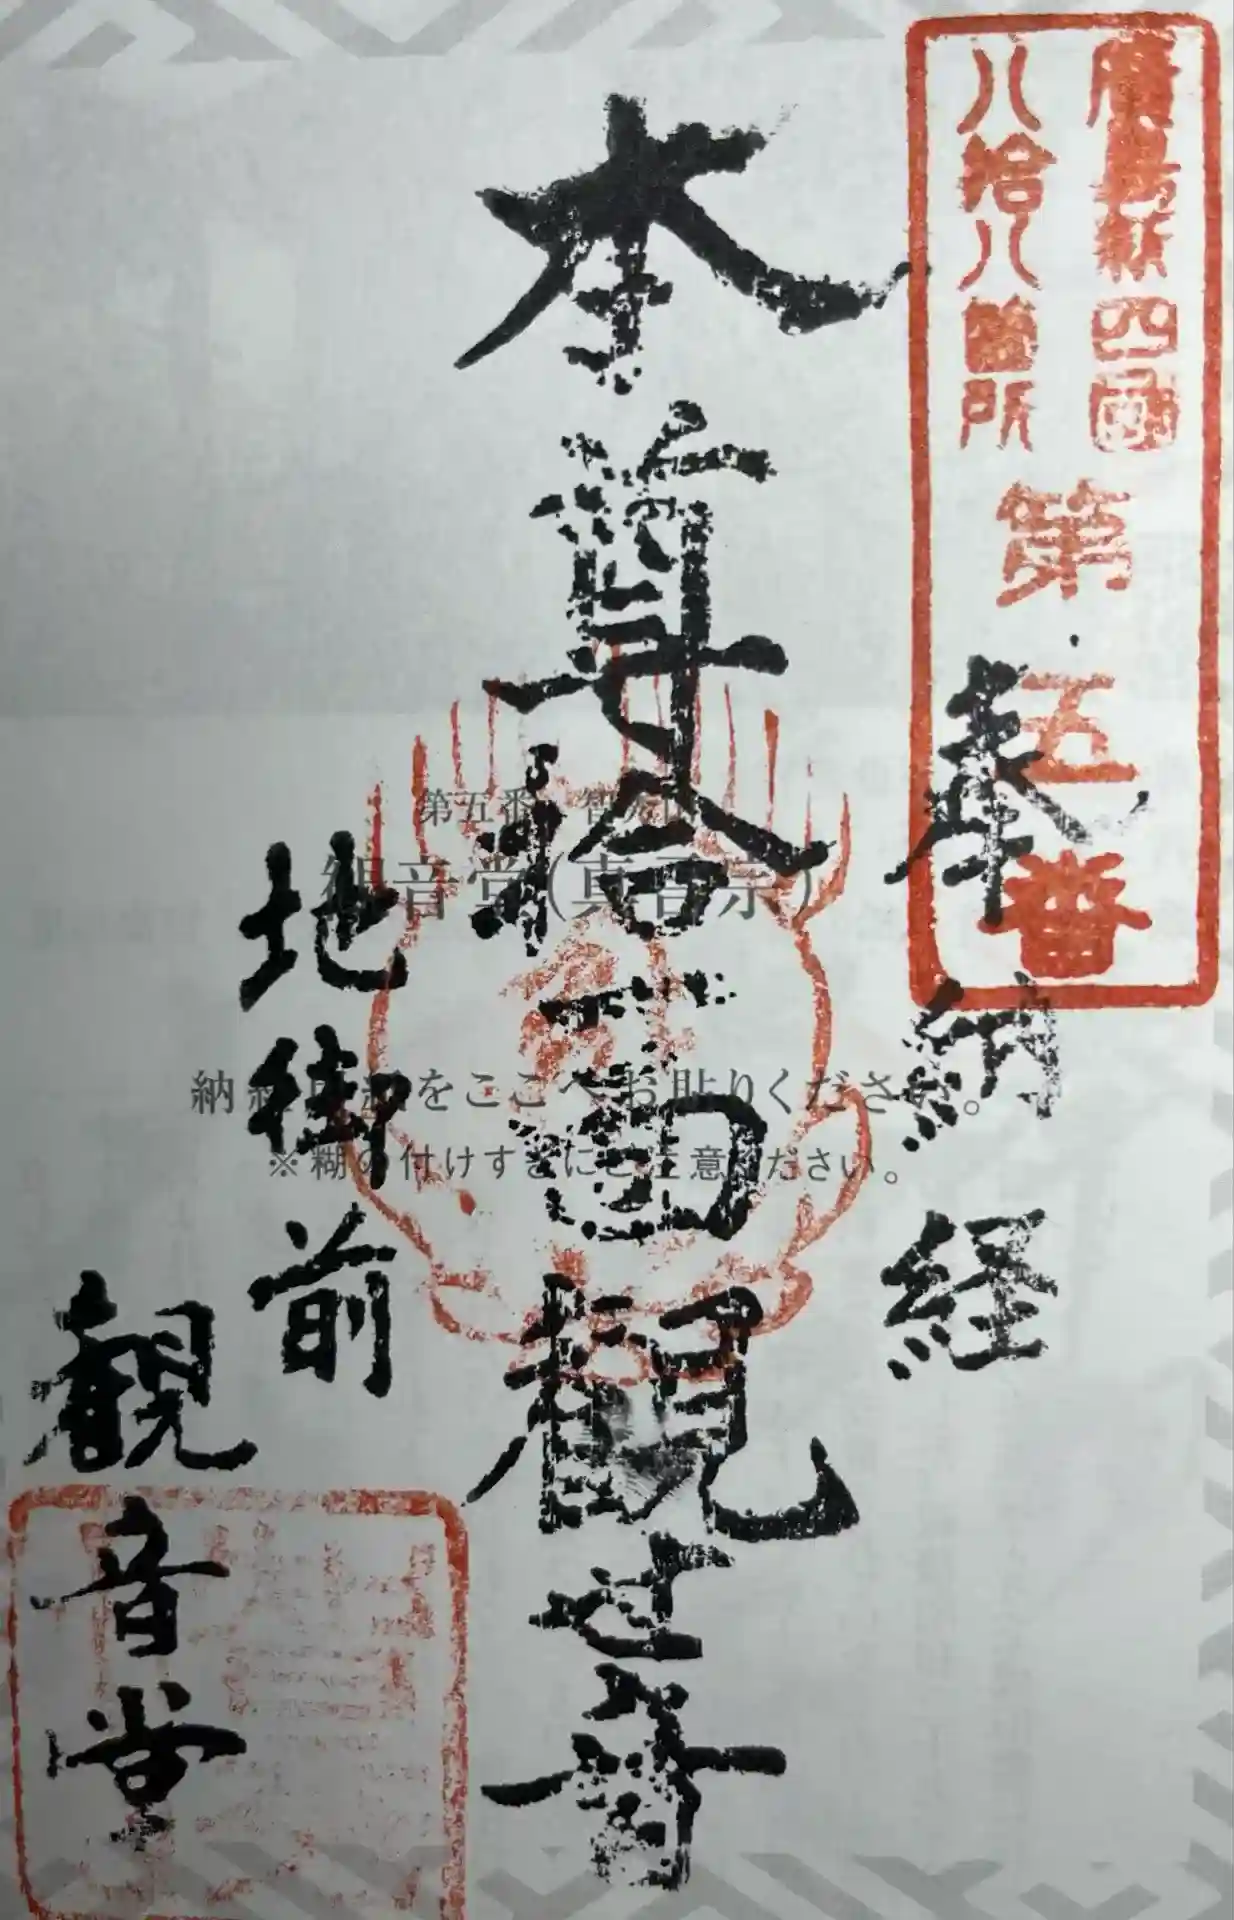 廣島新四國
八拾八箇所
第五番
奉納経
本尊拾一面観世音
地御前
観音堂
第五番
観音堂(真言宗)
納経用紙をここへお貼りください。
※糊の付けすぎにご注意ください。